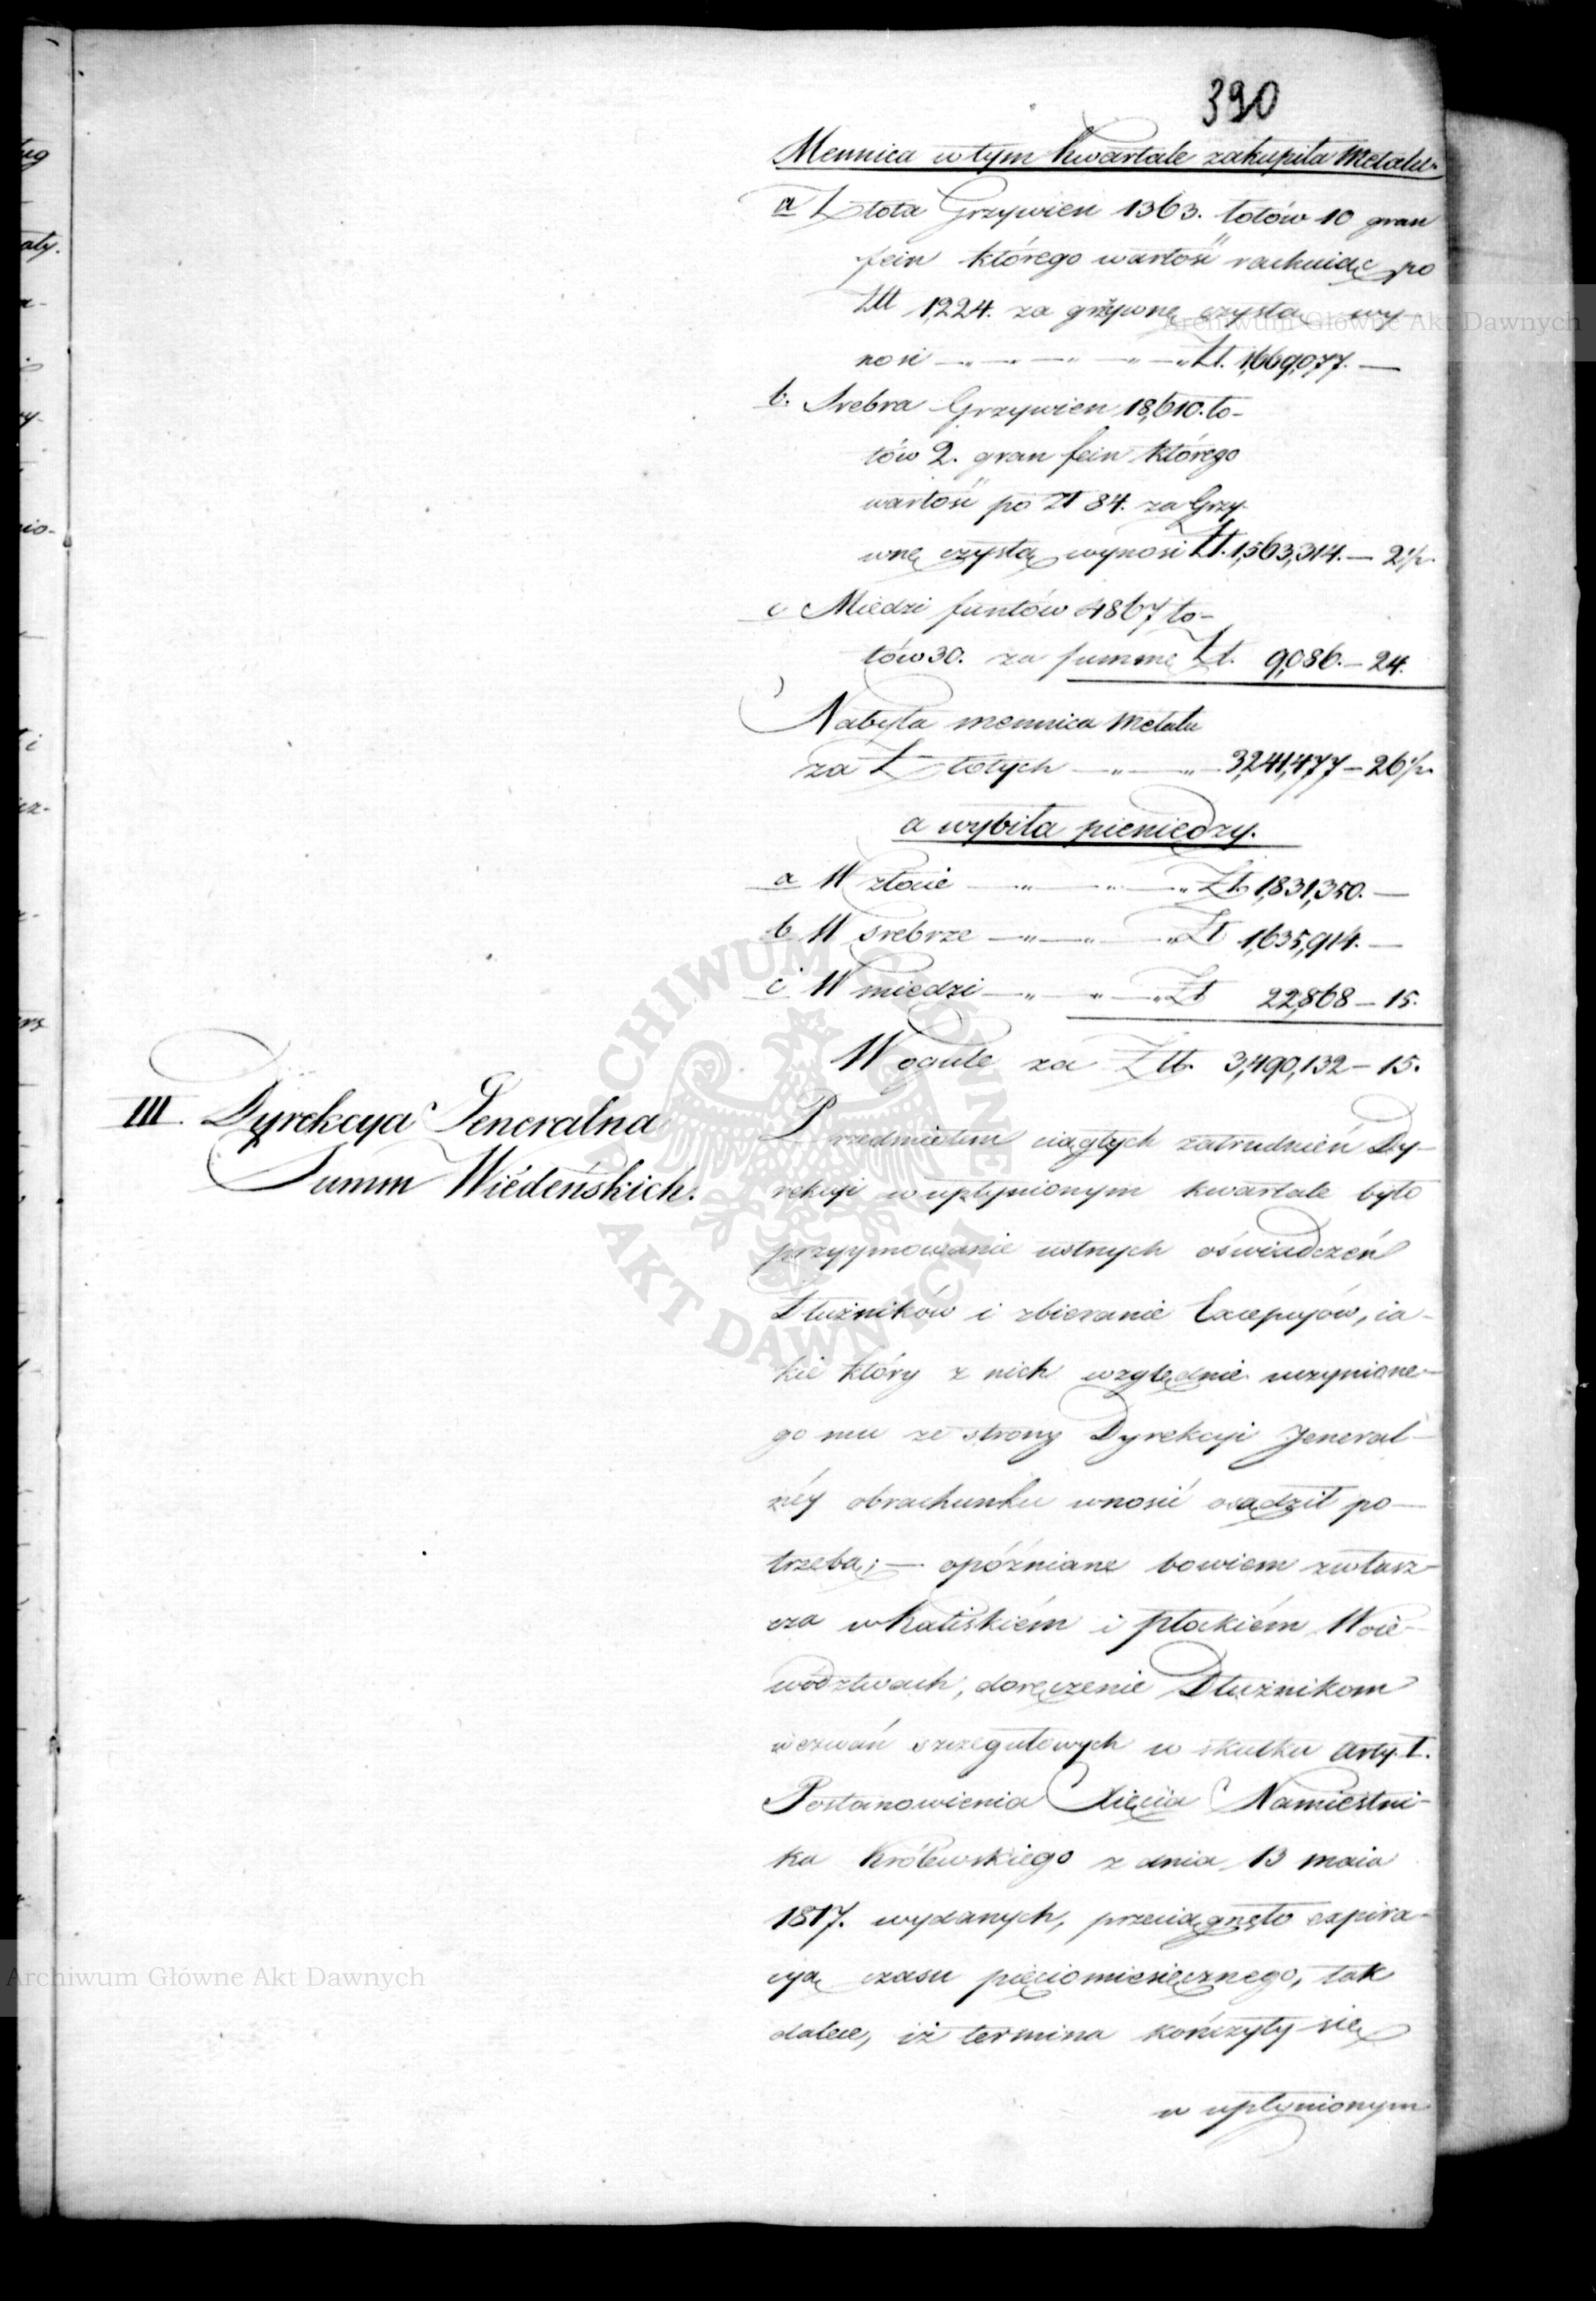 390
Mennica w tym Kwartale zakupiła Metalu.
a Złota Grzywien 1363. łotów 10 gran
fein którego wartość rachuiąc po
Złł 1,224. za grzywnę czystą wy-
nosi — „ — „ — „ — „ Zł. 1,669,077. —
b. Srebra Grzywien 18,610. ło-
tów 2. gran fein którego
wartość po Zł 84. za Grzy-
wnę czystą wynosi Zł. 1,563,314. — 2½.
c Miedzi funtów 4867 ło-
tów 30. za summę Zł. 9,086. — 24.
Nabyła mennica Metalu
za Złotych — „ — „ — 3,241,477 — 26½.
a wybiła pieniędzy.
a W złocie — „ — „ — „ Zł. 1,831,350. —
b W srebrze — „ — „ — „ Zł 1,635,914. —
c W miedzi — „ — „ — „ Zł 22,868 — 15.
W ogule za Złł. 3,490,132 — 15.
III. Dyrekcya Jeneralna
Summ Wiédeńskich.
Przedmiotem ciągłych zatrudnień Dy-
rekcyi w upłynionym kwartale było
przyymowanie ustnych oświadczeń
Dłużników i zbieranie Excepcyów, ia-
kie który z nich względnie uczynione-
go mu ze strony Dyrekcyi Jeneral-
néy obrachunku wnosić osądził po-
trzebą; — opóźniane bowiem zwłasz-
cza w Kaliskiém i płockiém Woie-
wództwach, doręczenie Dłużnikom
wezwań szczegułowych w skutku Arty. I.
Postanowienia Xięcia Namiestni-
ka Królewskiego z dnia 13 maia
1817. wydanych, przeciągnęło expira-
cyą czasu pięciomiesięcznego, tak
dalece, iż termina kończyły się
w upłynionym
Archiwum Główne Akt Dawnych
Archiwum Główne Akt Dawnych
ARCHIWUM GŁÓWNE AKT DAWNYCH